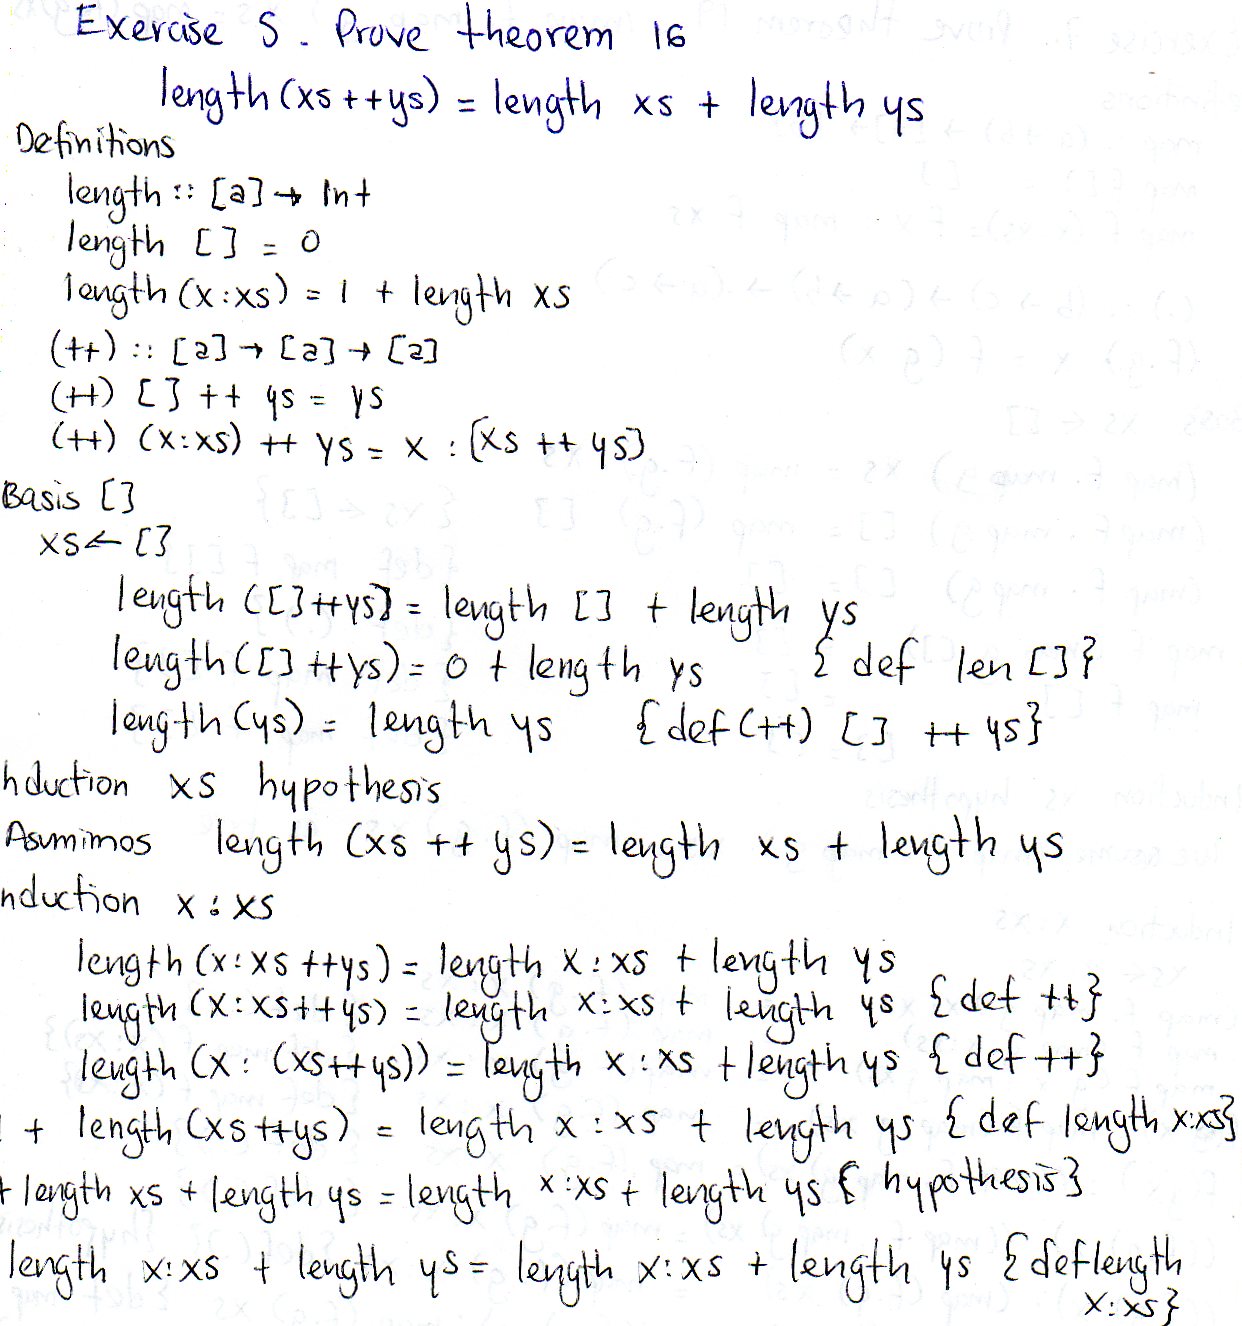 Exercise 5. Prove theorem 16
length (xs ++ ys) = length xs + length ys
Definitions
length :: [a] → Int
length [] = 0
length (x:xs) = 1 + length xs
(++) :: [a] → [a] → [a]
(++) [] ++ ys = ys
(++) (x:xs) ++ ys = x : (xs ++ ys)
Basis []
xs ← []
length ([] ++ ys) = length [] + length ys
length ([] ++ ys) = 0 + length ys { def len [] }
length (ys) = length ys { def (++) [] ++ ys }
nduction xs hypothesis
Asumimos length (xs ++ ys) = length xs + length ys
nduction x:xs
length (x:xs ++ ys) = length x:xs + length ys
length (x:xs ++ ys) = length x:xs + length ys { def ++ }
length (x : (xs ++ ys)) = length x:xs + length ys { def ++ }
+ length (xs ++ ys) = length x:xs + length ys { def length x:xs }
+ length xs + length ys = length x:xs + length ys { hypothesis }
length x:xs + length ys = length x:xs + length ys { def length
x:xs }